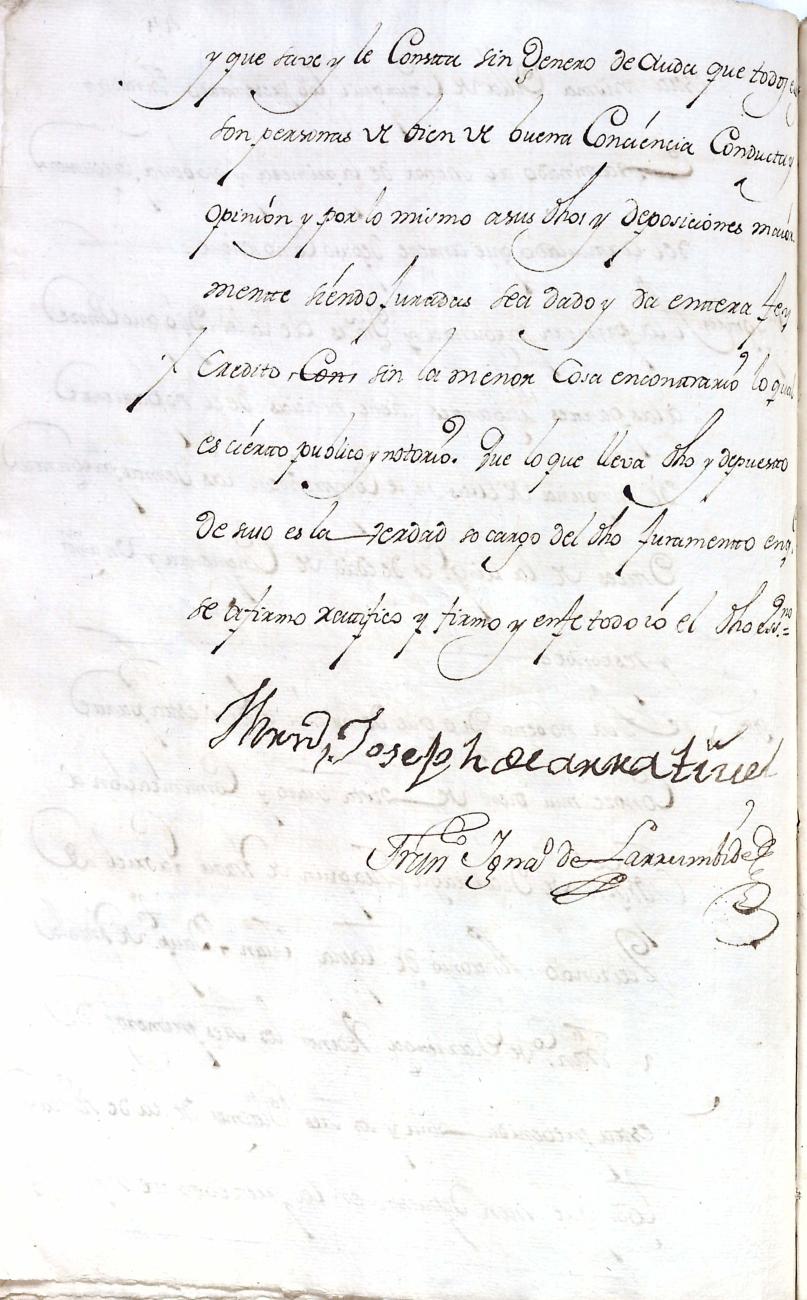 y que save y le Consta sin Genero de duda que todos
son personas de bien de buena Conciencia Conducta y
opinion y por lo mismo a sus dhos y deposiciones maior
mente siendo Juradas sea dado y da entera fe y
Credito, Con, sin la menor Cosa en contrario lo qual
es cierto publico y notorio. Que lo que lleva dho y depuesto
de suso es la verdad so cargo del dho Juramento en q.
se afirmo ratifico y firmo y en fe de todo io el dho ess.no=
Joseph de
Fran.co Igna.o de Larrumbide